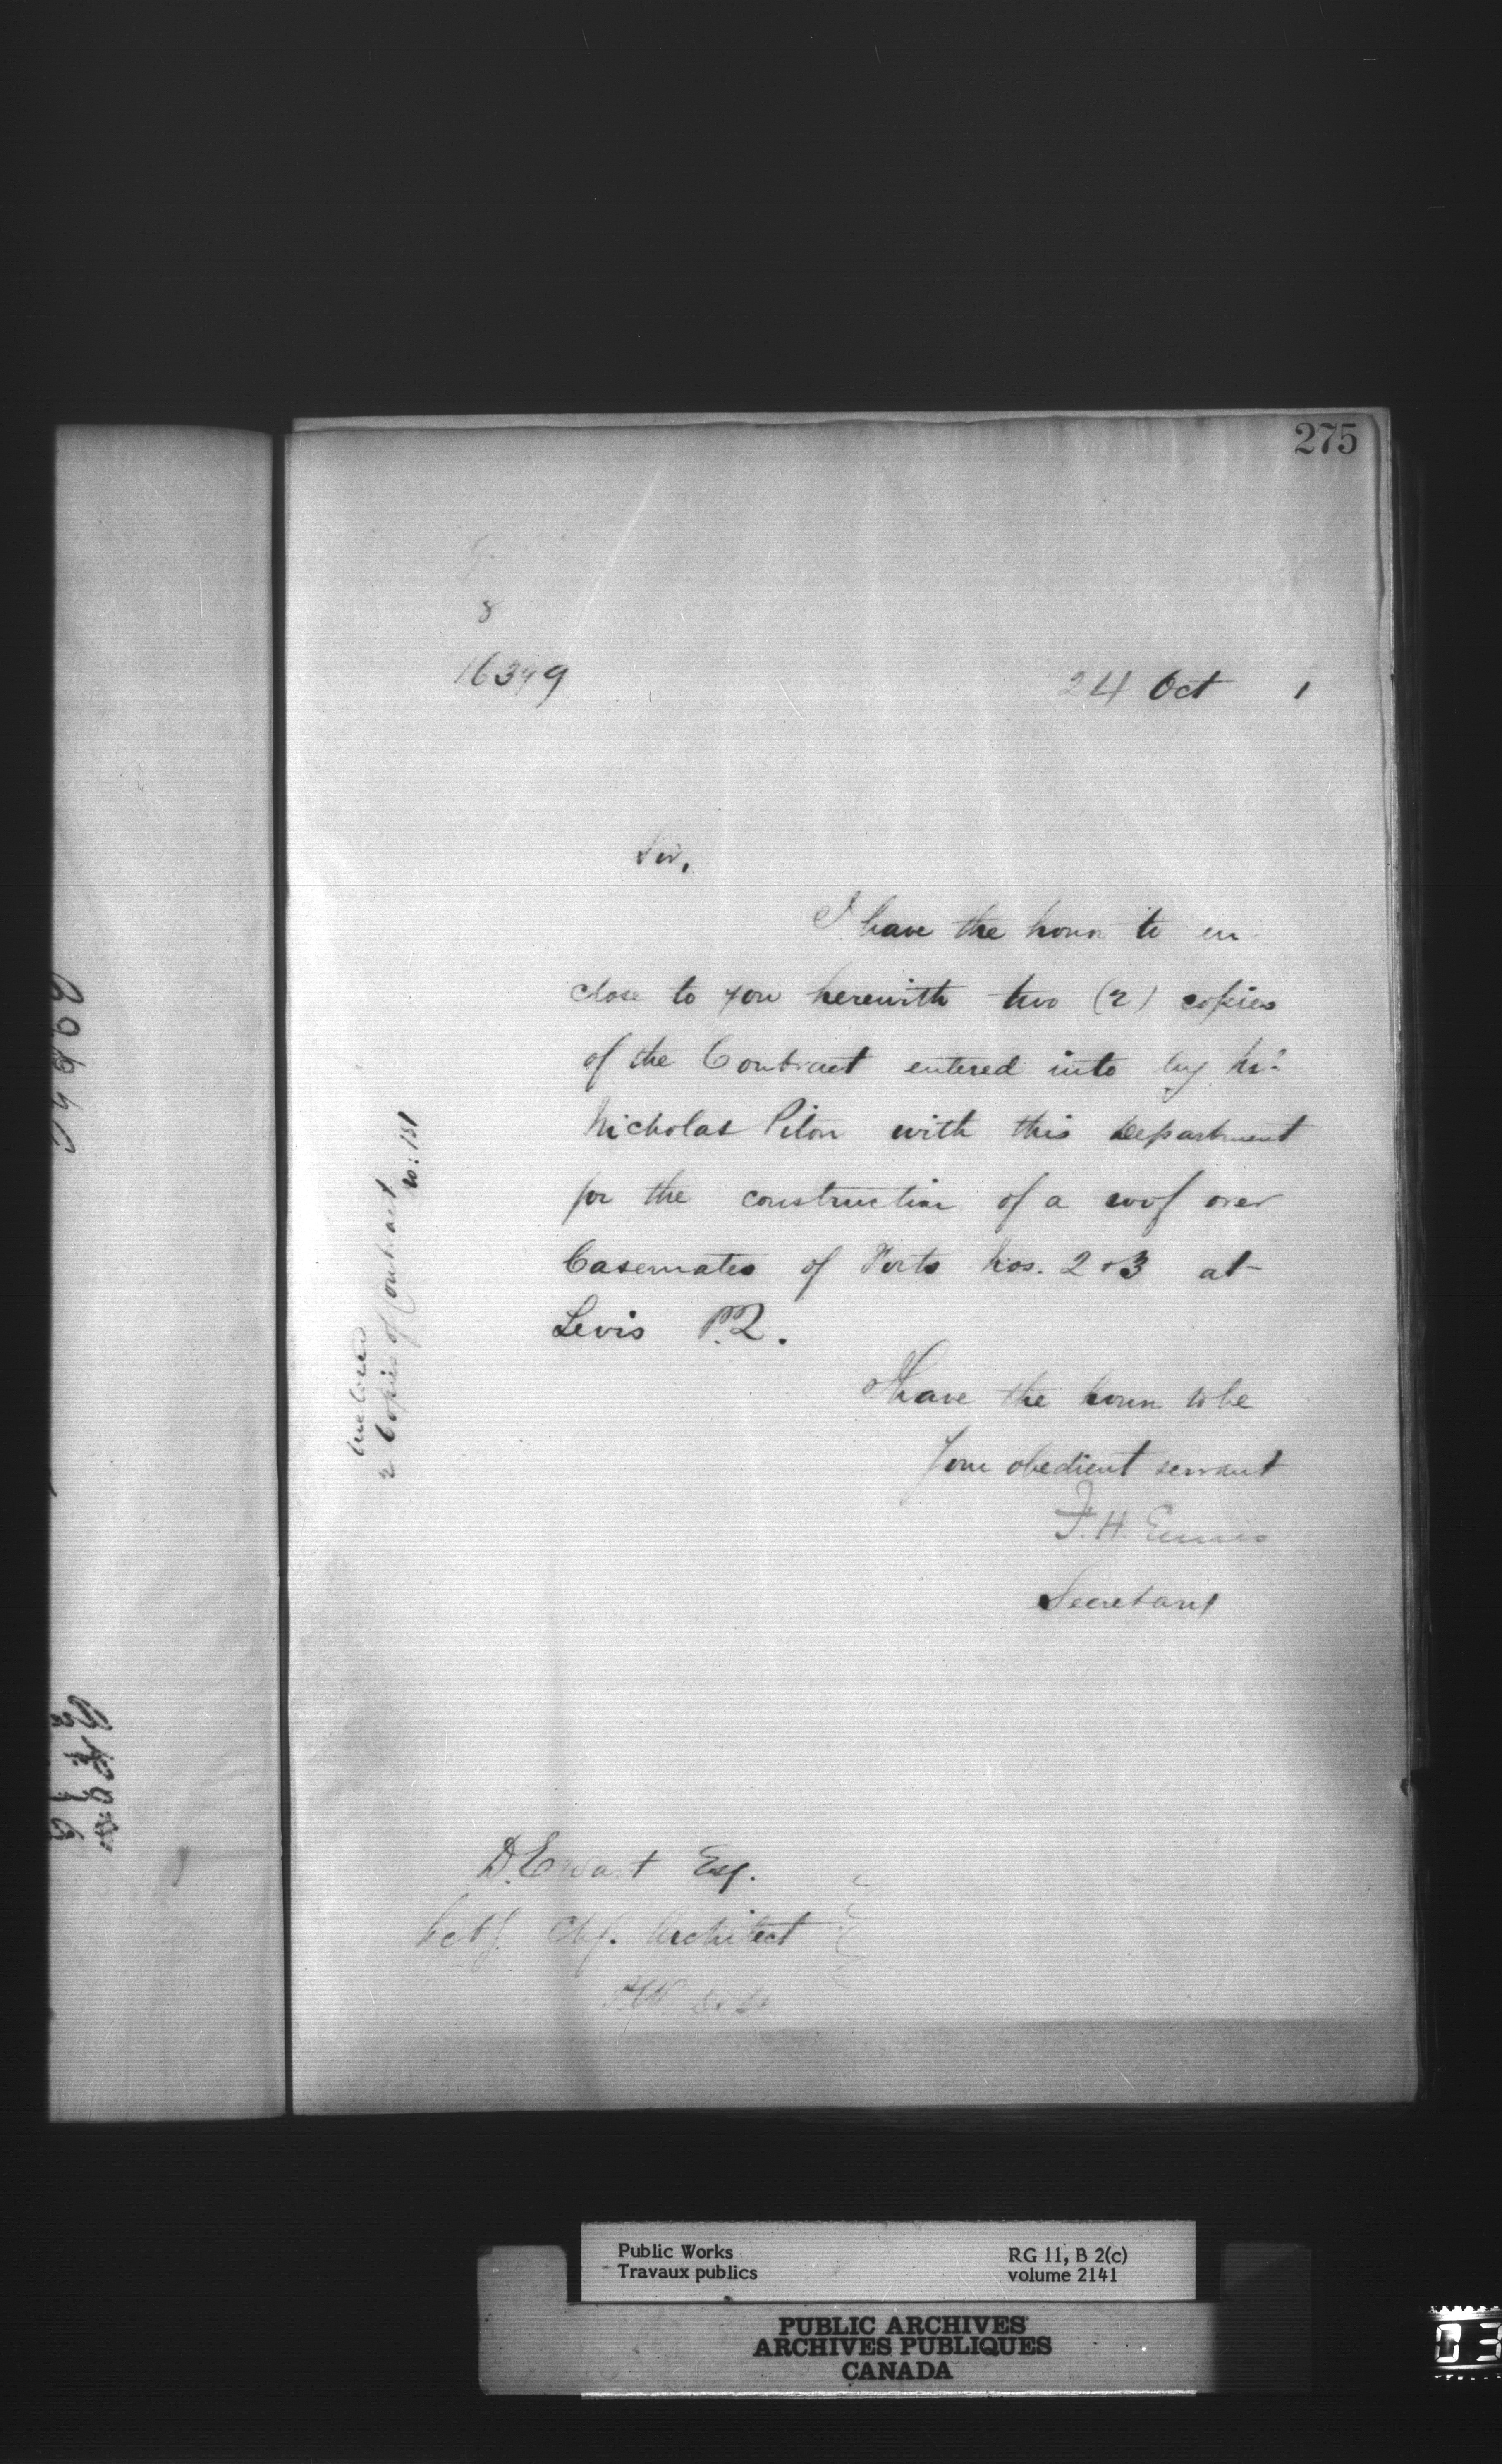 275
8
16379
24 Oct 1
Sir,
I have the honor to en-
close to you herewith two (2) copies
of the Contract entered into by Mr.
Nicholas Piton with this Department
for the construction of a roof over
Casemates of Forts Nos. 2 & 3 at
Levis P.Q.
I have the honor to be
Your obedient servant
F. H. Ennis
Secretary
Enclosed
2 Copies of Contract
No: 181
D. Ewart Esq.
Actg. Chf. Architect
Public Works
Travaux publics
RG 11, B 2(c)
volume 2141
PUBLIC ARCHIVES
ARCHIVES PUBLIQUES
CANADA
03